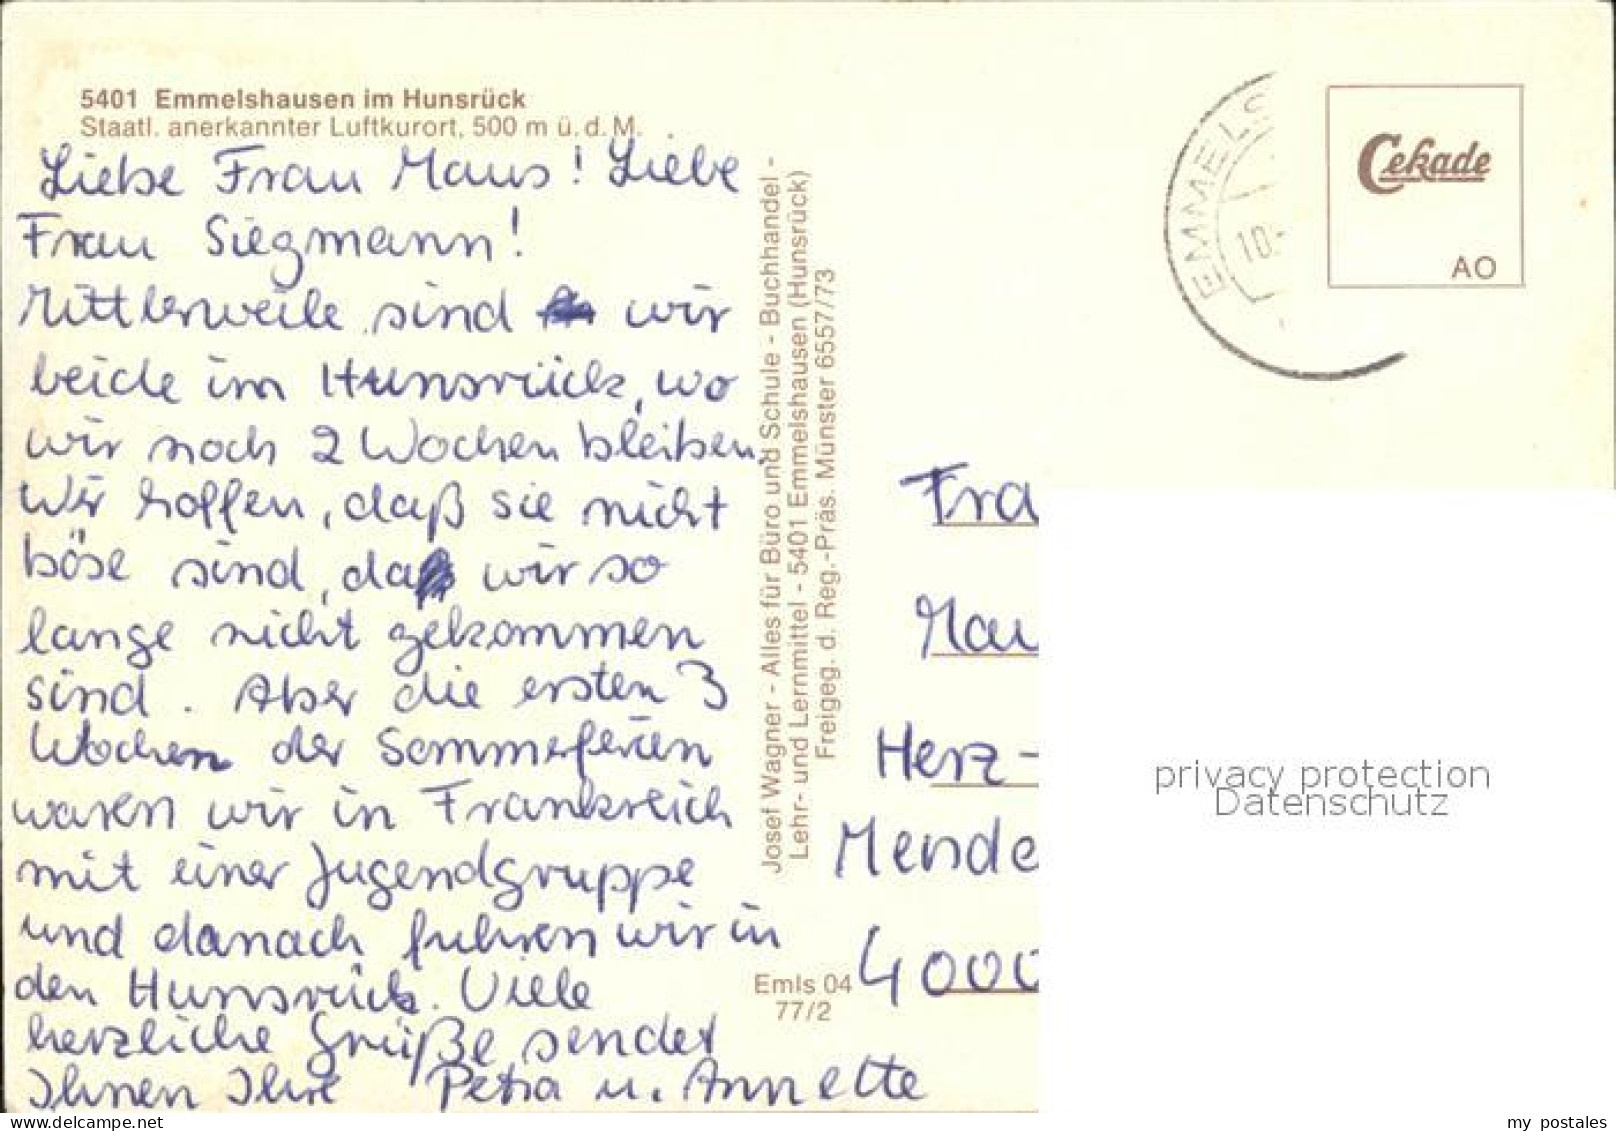 5401 Emmelshausen im Hunsrück
Staatl. anerkannter Luftkurort, 500 m ü. d. M.
Liebe Frau Maus! Liebe
Frau Siegmann!
Mittlerweile sind wir
beide im Hunsrück, wo
wir noch 2 Wochen bleiben.
Wir hoffen, daß sie nicht
böse sind, daß wir so
lange nicht gekommen
sind. Aber die ersten 3
Wochen der Sommerferien
waren wir in Frankreich
mit einer Jugendgruppe
und danach fuhren wir in
den Hunsrück. Viele
herzliche Grüße sendet
Ihnen Ihre Petra u. Annette
Josef Wagner - Alles für Büro und Schule - Buchhandel -
Lehr- und Lernmittel - 5401 Emmelshausen (Hunsrück)
Freigeg. d. Reg.-Präs. Münster 6557/73
Emls 04
77/2
EMMELS
10.
Cekade
AO
Fra
Mau
Herz-
Mende
4000
privacy protection
Datenschutz
www.delcampe.net
my_postales